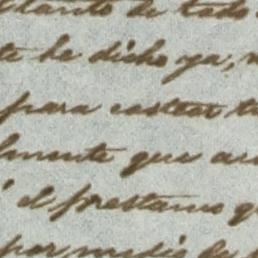 de todo
te he dicho ya,
para costear
lmente que
el prestamo q
por medio de